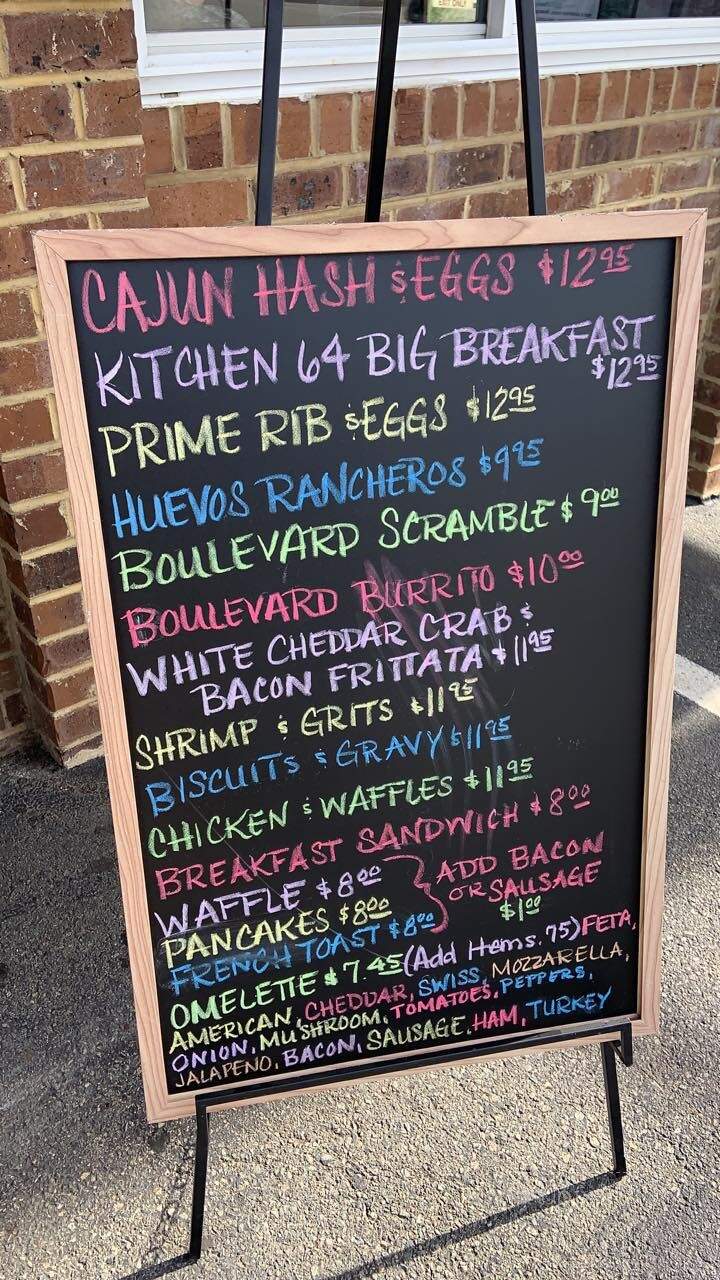 EXIT ONLY
CAJUN HASH & EGGS $12.95
KITCHEN 64 BIG BREAKFAST
$12.95
PRIME RIB & EGGS $12.95
HUEVOS RANCHEROS $9.95
BOULEVARD SCRAMBLE $9.00
BOULEVARD BURRITO $10.00
WHITE CHEDDAR CRAB &
BACON FRITTATA $11.95
SHRIMP & GRITS $11.95
BISCUITS & GRAVY $11.95
CHICKEN & WAFFLES $11.95
BREAKFAST SANDWICH $8.00
WAFFLE $8.00
PANCAKES $8.00
FRENCH TOAST $8.00
ADD BACON
OR SAUSAGE
$1.00
OMELETTE $7.45 (Add Items .75) FETA,
AMERICAN, CHEDDAR, SWISS, MOZZARELLA,
ONION, MUSHROOM, TOMATOES, PEPPERS,
JALAPENO, BACON, SAUSAGE, HAM, TURKEY